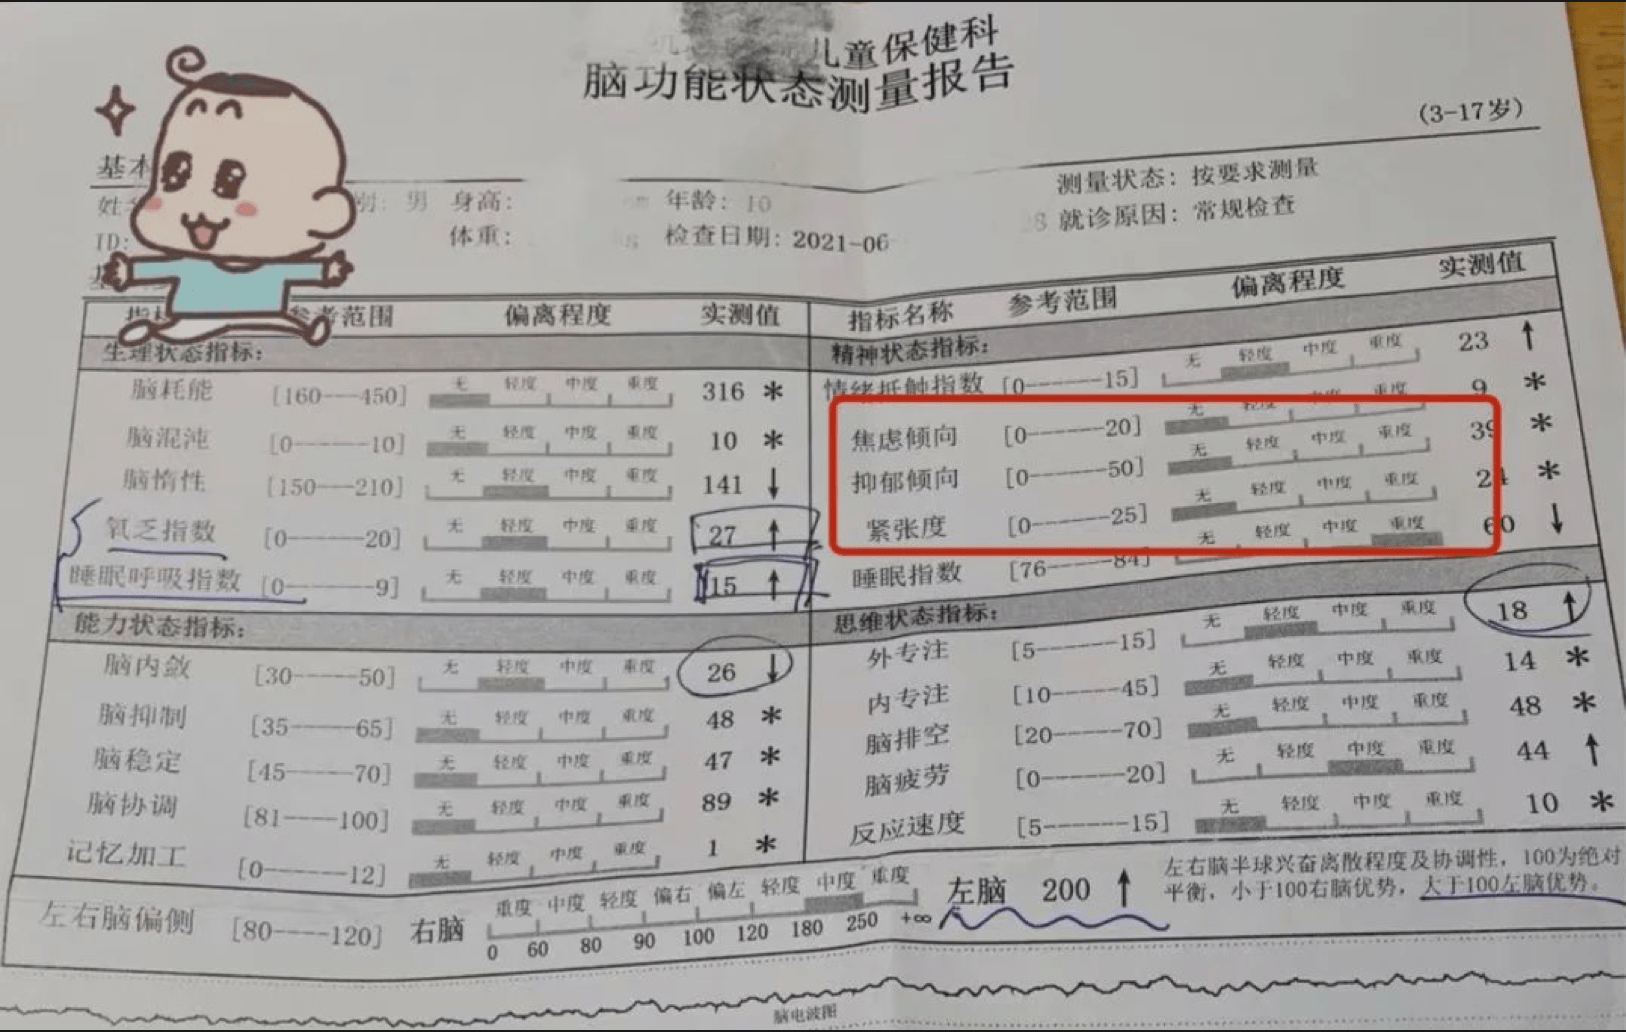 儿童保健科
脑功能状态测量报告
(3-17岁)
基本
别: 男 身高: 年龄: 10 测量状态: 按要求测量
ID: 体重: 检查日期: 2021-06 就诊原因: 常规检查
参考范围 偏离程度 实测值
生理状态指标:
脑耗能 [160---450] 无 轻度 中度 重度 316 *
脑混沌 [0------10] 无 轻度 中度 重度 10 *
脑惰性 [150---210] 无 轻度 中度 重度 141 ↓
氧乏指数 [0------20] 无 轻度 中度 重度 27 ↑
睡眠呼吸指数 [0------9] 无 轻度 中度 重度 15 ↑
能力状态指标:
脑内敛 [30-----50] 无 轻度 中度 重度 26 ↓
脑抑制 [35-----65] 无 轻度 中度 重度 48 *
脑稳定 [45-----70] 无 轻度 中度 重度 47 *
脑协调 [81----100] 无 轻度 中度 重度 89 *
记忆加工 [0------12] 无 轻度 中度 重度 1 *
指标名称 参考范围 偏离程度 实测值
精神状态指标:
情绪抵触指数 [0------15] 无 轻度 中度 重度 23 ↑
焦虑倾向 [0------20] 无 轻度 中度 重度 9 *
抑郁倾向 [0------50] 无 轻度 中度 重度 39 *
紧张度 [0------25] 无 轻度 中度 重度 24 *
睡眠指数 [76-----84] 无 轻度 中度 重度 60 ↓
思维状态指标:
外专注 [5------15] 无 轻度 中度 重度 18 ↑
内专注 [10-----45] 无 轻度 中度 重度 14 *
脑排空 [20-----70] 无 轻度 中度 重度 48 *
脑疲劳 [0------20] 无 轻度 中度 重度 44 ↑
反应速度 [5------15] 无 轻度 中度 重度 10 *
左右脑偏侧 [80----120] 右脑 重度 中度 轻度 偏右 偏左 轻度 中度 重度 左脑 200 ↑
0 60 80 90 100 120 180 250 +∞
左右脑半球兴奋离散程度及协调性, 100为绝对
平衡, 小于100右脑优势, 大于100左脑优势。
脑电波图